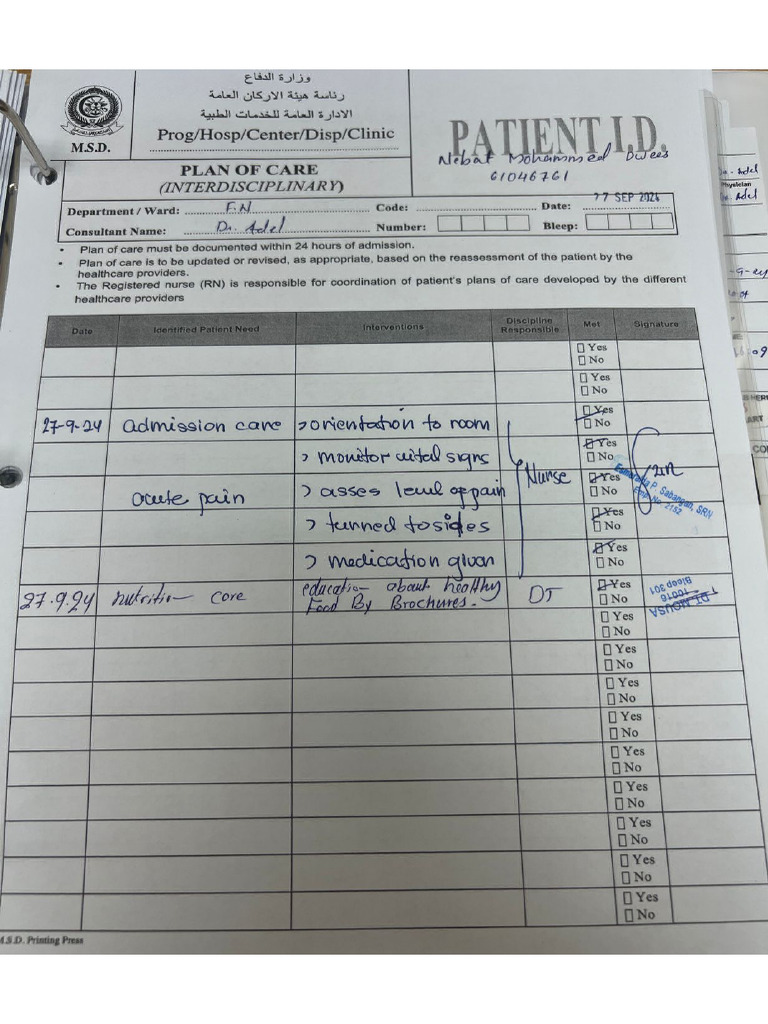 وزارة الدفاع
رئاسة هيئة الاركان العامة
الادارة العامة للخدمات الطبية
M.S.D.
Prog/Hosp/Center/Disp/Clinic
PATIENT I.D.
Nebat Mohammed Dwees
61046761
PLAN OF CARE
(INTERDISCIPLINARY)
Department / Ward: F.N Code: Date: SEP
Consultant Name: Dr. Adel Number: Bleep:
• Plan of care must be documented within 24 hours of admission.
• Plan of care is to be updated or revised, as appropriate, based on the reassessment of the patient by the
healthcare providers.
• The Registered nurse (RN) is responsible for coordination of patient's plans of care developed by the different
healthcare providers
Date Identified Patient Need Interventions Discipline Responsible Met Signature
Yes
No
Yes
No
27-9-24 admission care > orientation to room Yes
No
> monitor vital signs Yes
No
acute pain > asses level of pain Nurse Yes
No
Esmeralda P. Sabangan, SRN
Emp. No. 2152
> turned to sides Yes
No
> medication given Yes
No
27.9.24 nutrition care education about healthy DT Yes
Food By Brochures. No
DT. MOUSA
10016
Bleep 301
Yes
No
Yes
No
Yes
No
Yes
No
Yes
No
Yes
No
Yes
No
Yes
No
Yes
No
M.S.D. Printing Press
Physician
Adel